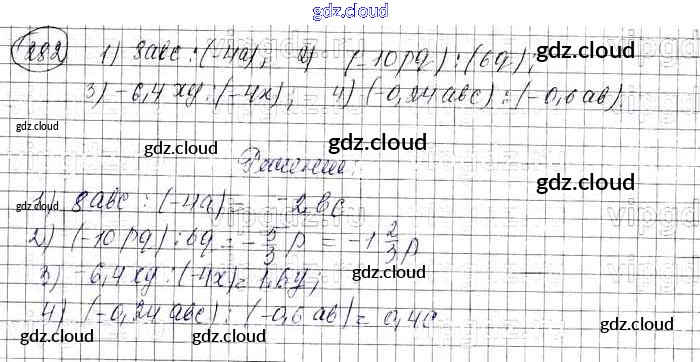 gdz.cloud
282 1) 8abc : (-4a); 2) (-10pq) : (6q);
gdz.cloud
3) -6,4xy : (-4x); 4) (-0,24abc) : (-0,6ab).
gdz.cloud
gdz.cloud gdz.cloud
Решение:
gdz.cloud gdz.cloud
1) 8abc : (-4a) = -2bc
gdz.cloud gdz.cloud
2) (-10pq) : 6q = -5/3 p = -1 2/3 p
gdz.cloud
3) -6,4xy : (-4x) = 1,6y;
4) (-0,24abc) : (-0,6ab) = 0,4c
gdz.cloud gdz.cloud gdz.cloud